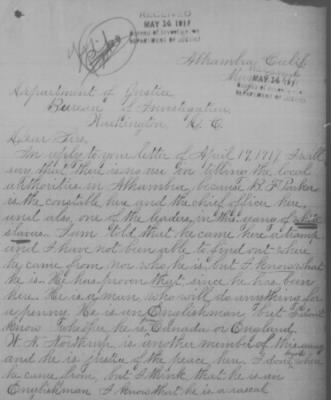 RECEIVED
MAY 24 1917
Bureau of Investigation
DEPARTMENT OF JUSTICE
Alhambra Calif
May
MAY 24 1917
Bureau of Investigation
DEPARTMENT OF JUSTICE
Department of Justice
Bureau of Investigation,
Washington, D. C.
Dear Sirs,
In reply to your letter of April 17, 1917, I will
say that there is no use for letting the local
authorities in Alhambra, because B. F. Parker
is the constable here and the chief officer here,
and also, one of the leaders, in this gang of white
slavers. I am told that he came here a tramp
and I have not been able to find out where
he came from nor who he is, but I know what
he is. He has proven that since he has been
here. He is a man who will do anything for
a penny. He is an Englishman but I don't
know whether he is Canada or England.
W. N. Northrup is another member of this gang
and he is justice of the peace here. I don't know where
he came from, but I think that he is an
Englishman I know that he is a rascal